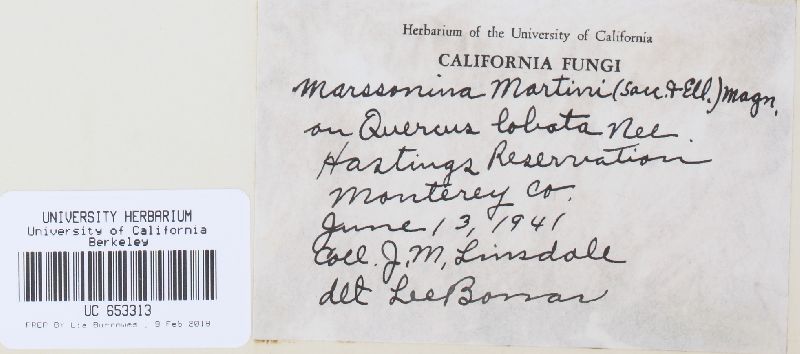 Herbarium of the University of California
CALIFORNIA FUNGI
Marssonina Martini (Sacc. & Ell.) Magn.
on Quercus lobata Nee
Hastings Reservation
Monterey Co.
June 13, 1941
Coll. J. M. Linsdale
det Lee Bonar
UNIVERSITY HERBARIUM
University of California
Berkeley
UC 653313
PREP BY Lia Burrowes , 9 Feb 2018